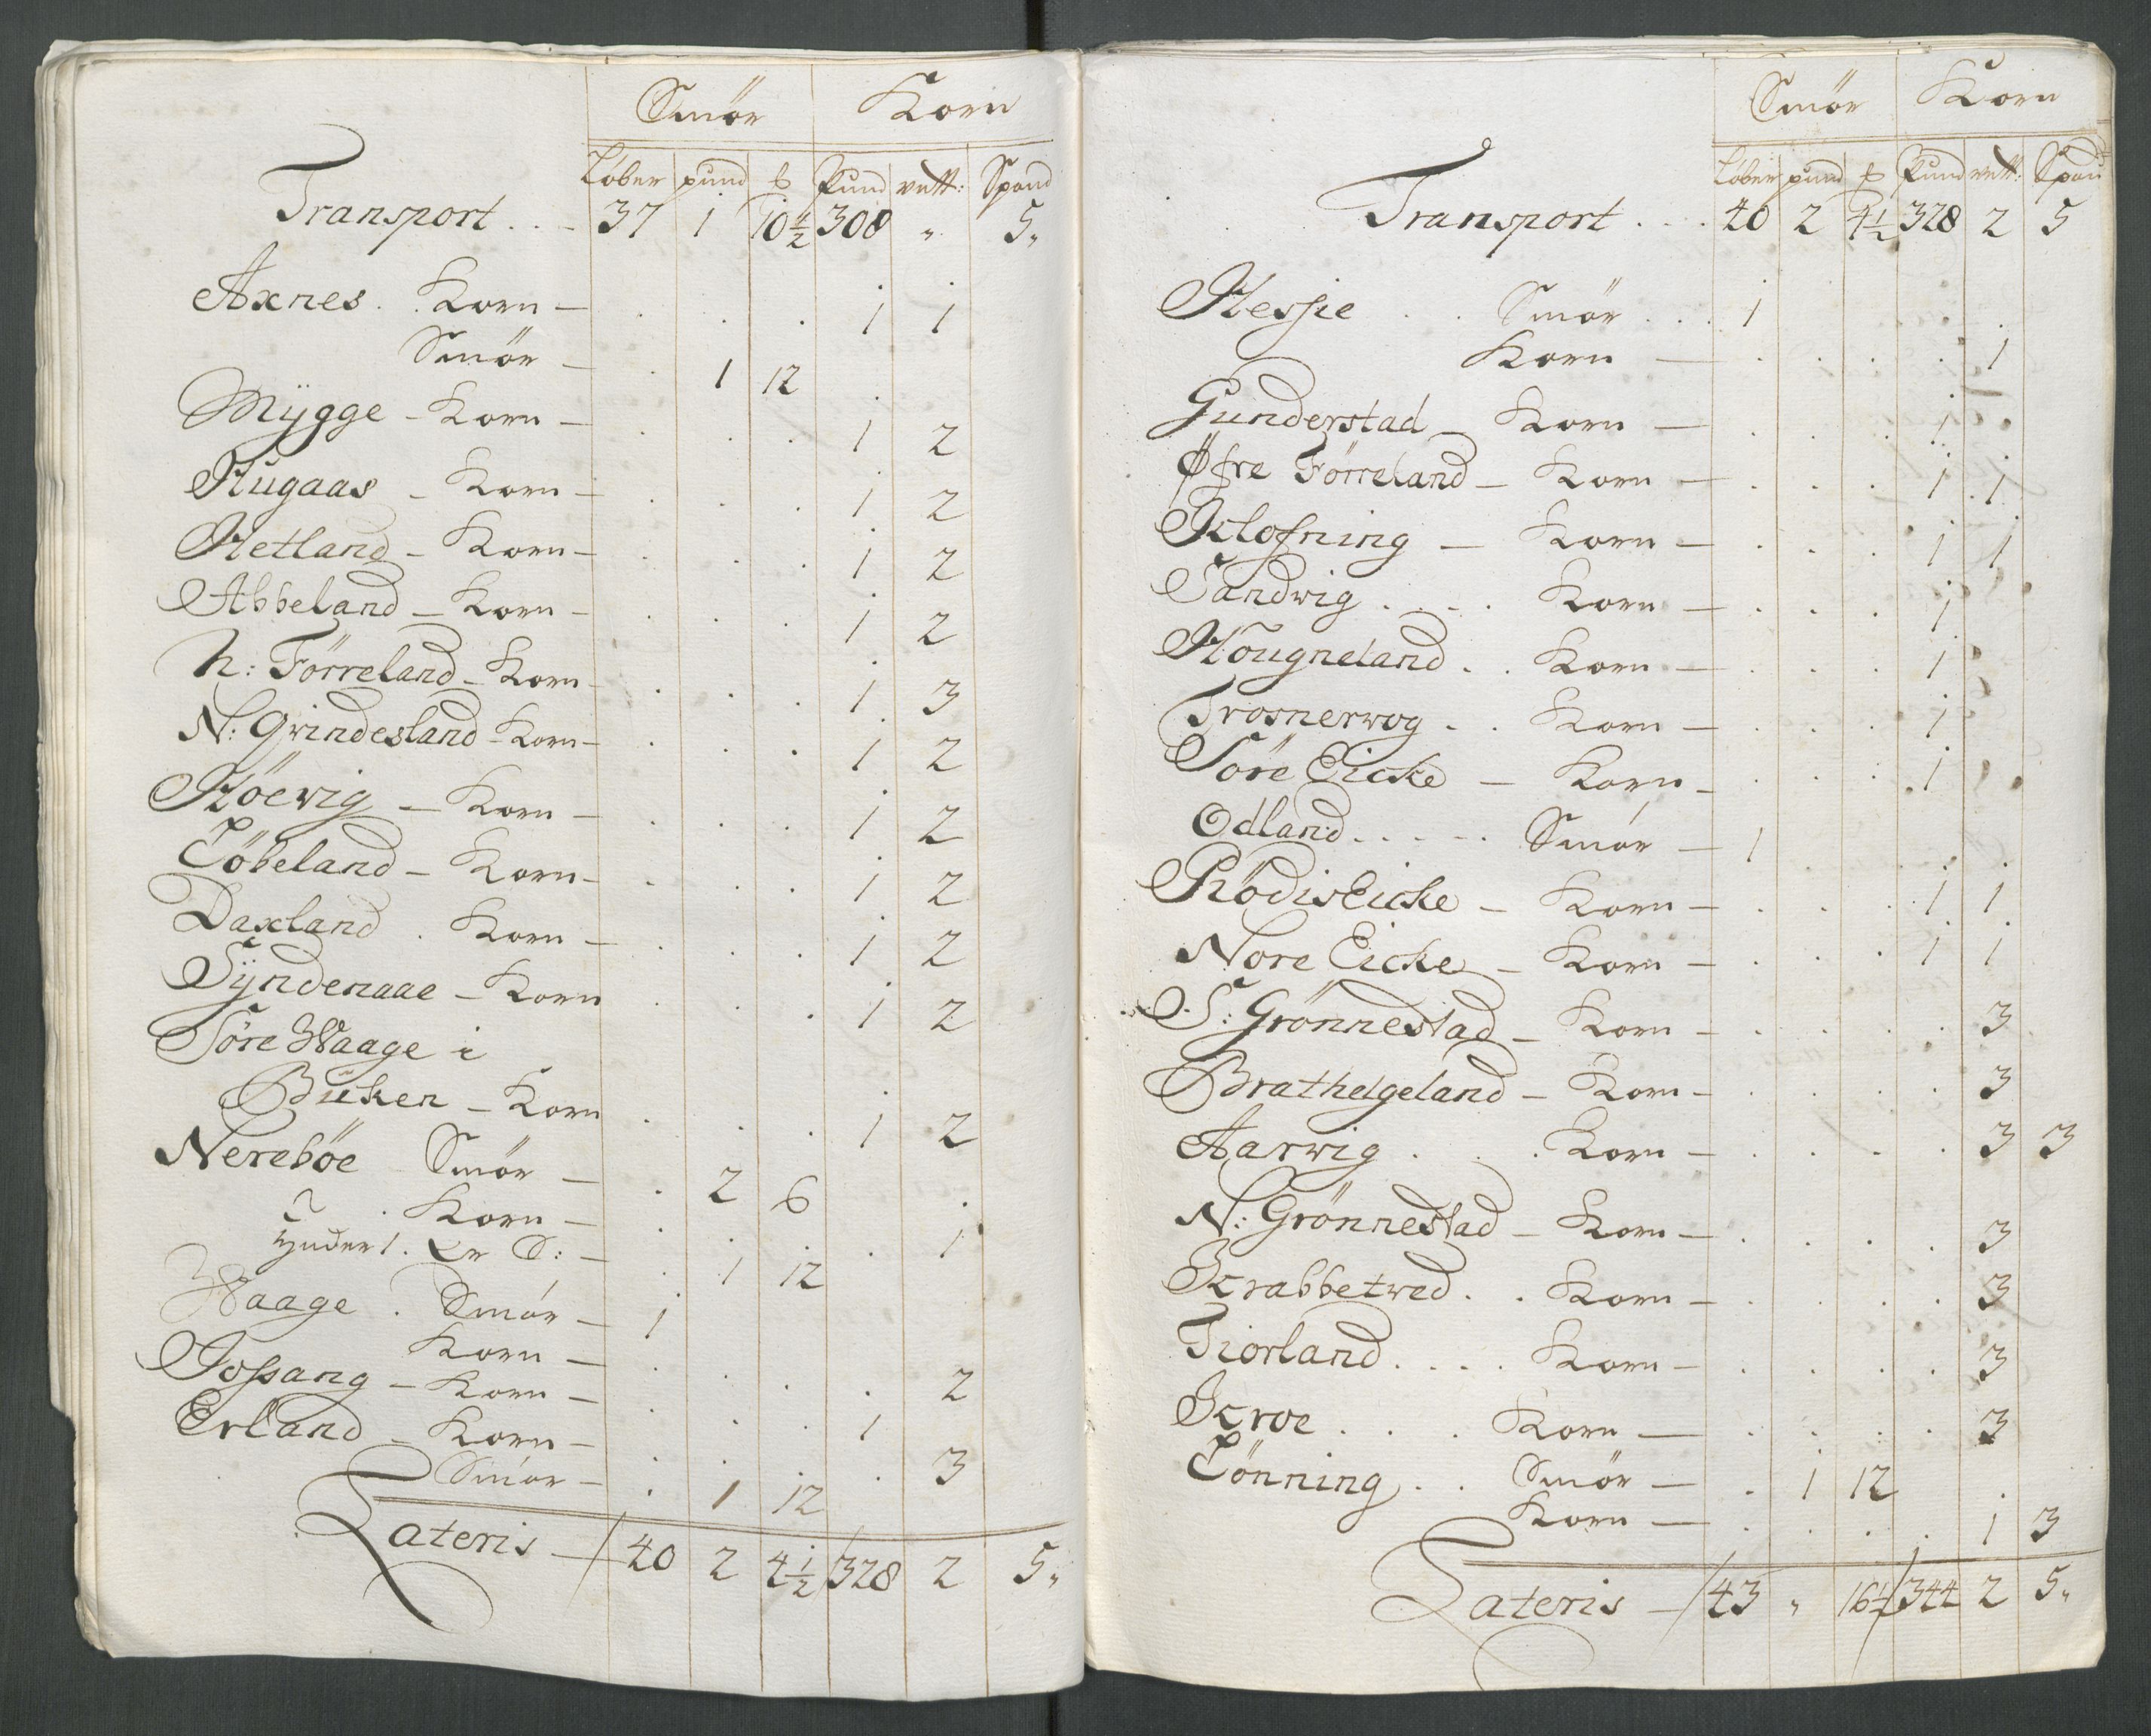 Smör Korn
Löber pund ℔ Pund vett: Spand
Transport . . . 37 1 10½ 308 " 5"
Axnes . . Korn — . . . 1 1
Smör — . 1 12 .
Mÿgge - Korn — . . . 1 2
Hugaas - Korn — . . . 1 2
Hetland - Korn — . . . 1 2
Abbeland - Korn — . . . 1 2
N: Förreland - Korn — . . . 1 3
N: Grindesland - Korn — . . . 1 2
Höevig — Korn — . . . 1 2
Töbeland - Korn — . . . 1 2
Daxland . Korn — . . . 1 2
Sÿndenaae - Korn . . . 1 2
Söre Waage i
Buken - Korn . . . 1 2
Nereböe Smör — . 2 6
Korn — . . . . 1
1 . — . 1 12
Waage . Smör — 1
Korn — . . . . 2
Jossang - Korn — . . . 1
Erland - Korn — . . . . 3
Smör — . 1 12
Lateris — 40 2 4½ 328 2 5"
Smör Korn
Löber pund ℔ Pund vett: Spand
Transport . . . 40 2 4½ 328 2 5
Hessie . . Smör . . . 1
Korn — . . . . 1
Gunderstad - Korn — . . . 1
Øfre Förreland - Korn — . . . 1 1
Klofning — Korn — . . . 1 1
Sandwig . . . . Korn — . . . 1
Hougneland . . Korn — . . . 1
Trosnerwog . . Korn — . . . 1
Söre Eicke — Korn — . . . 1
Odland . . . . . Smör — 1
RödisEicke — Korn — . . . 1 1
Nore Eicke - Korn — . . . 1 1
S: Grönnestad - Korn — . . . . 3
Brathelgeland - Korn — . . . . 3
Aarwig . . . Korn — . . . . 3 3
N: Grönnestad - Korn — . . . . 3
Krabbetwed . . Korn — . . . . 3
Tiorland . . . . Korn — . . . . 3
Kroe . . . Korn — . . . . 3
Tönning . . Smör — . 1 12
Korn — . . . . 1 3
Lateris — 43 " 16½ 344 2 5"